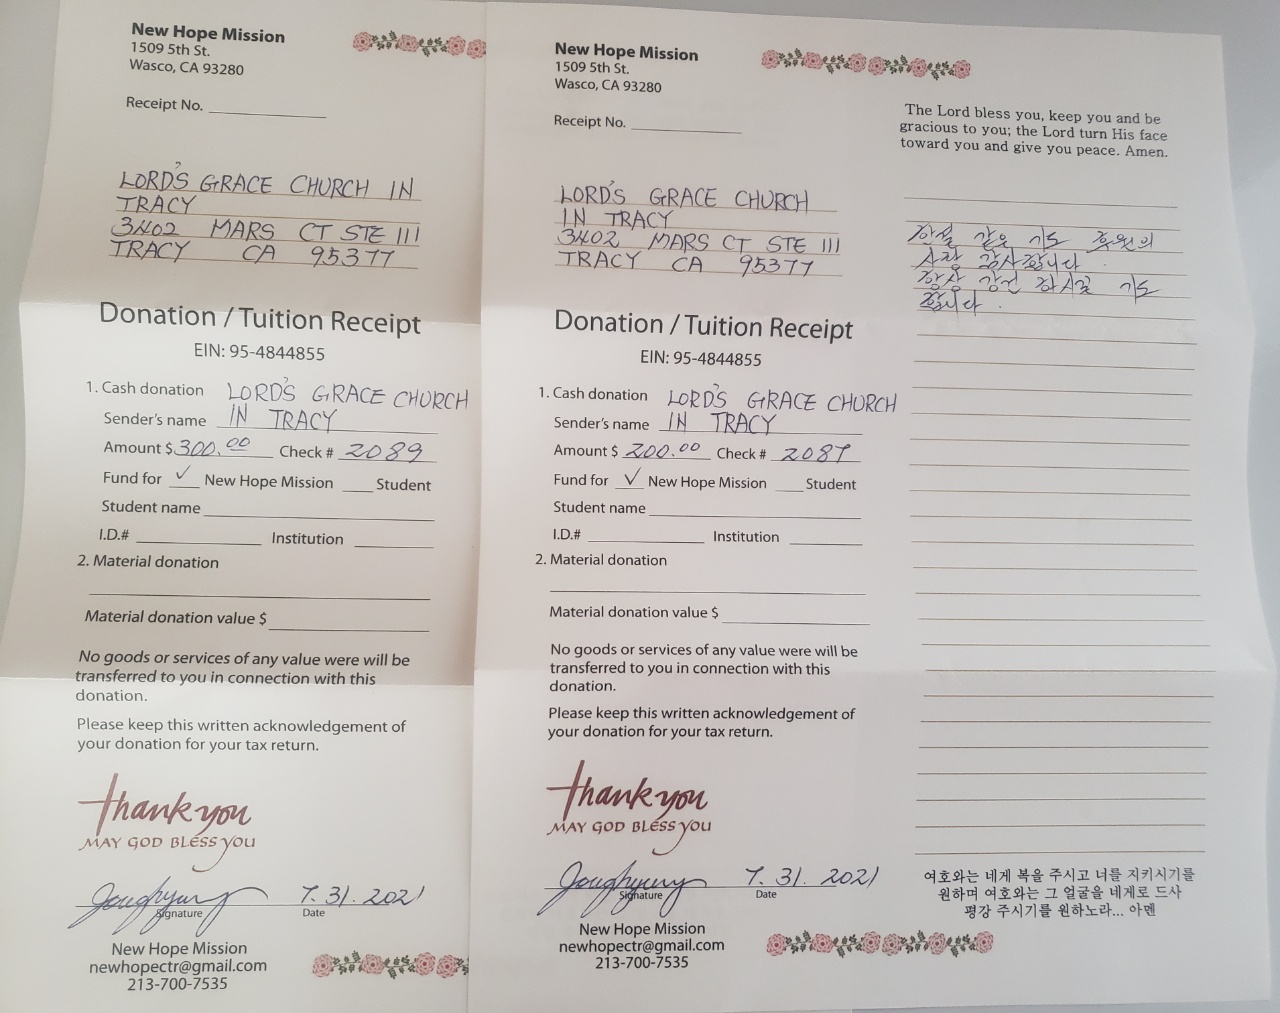 New Hope Mission
1509 5th St.
Wasco, CA 93280
Receipt No.
LORD'S GRACE CHURCH IN
TRACY
3402 MARS CT STE 111
TRACY CA 95377
Donation / Tuition Receipt
EIN: 95-4844855
1. Cash donation LORD'S GRACE CHURCH
Sender's name IN TRACY
Amount $ 300.00 Check # 2089
Fund for ✓ New Hope Mission Student
Student name
I.D.# Institution
2. Material donation
Material donation value $
No goods or services of any value were will be
transferred to you in connection with this
donation.
Please keep this written acknowledgement of
your donation for your tax return.
thank you
MAY GOD BLESS YOU
7.31.2021
Signature Date
New Hope Mission
newhopectr@gmail.com
213-700-7535
New Hope Mission
1509 5th St.
Wasco, CA 93280
Receipt No.
LORD'S GRACE CHURCH
IN TRACY
3402 MARS CT STE 111
TRACY CA 95377
Donation / Tuition Receipt
EIN: 95-4844855
1. Cash donation LORD'S GRACE CHURCH
Sender's name IN TRACY
Amount $ 200.00 Check # 2087
Fund for ✓ New Hope Mission Student
Student name
I.D.# Institution
2. Material donation
Material donation value $
No goods or services of any value were will be
transferred to you in connection with this
donation.
Please keep this written acknowledgement of
your donation for your tax return.
thank you
MAY GOD BLESS YOU
7.31.2021
Signature Date
New Hope Mission
newhopectr@gmail.com
213-700-7535
The Lord bless you, keep you and be
gracious to you; the Lord turn His face
toward you and give you peace. Amen.
한결 같은 기도 후원의
사랑 감사합니다.
항상 강건 하시길 기도
합니다.
여호와는 네게 복을 주시고 너를 지키시기를
원하며 여호와는 그 얼굴을 네게로 드사
평강 주시기를 원하노라... 아멘